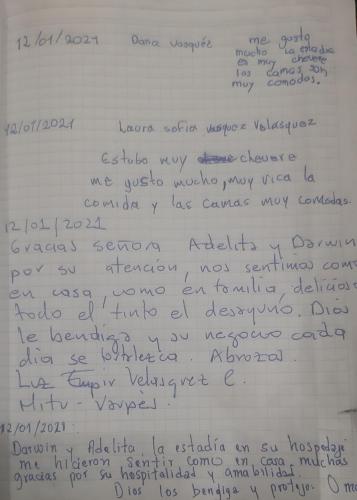 12/01/2021 Dana vasquéz me gusto
mucho la estadia
es muy chevere
las camas son
muy comodas.
12/01/2021 Laura sofia vasquez Velasquez
Estubo muy chevere
me gusto mucho, muy rica la
comida y las camas muy comodas.
12/01/2021
Gracias señora Adelita y Darwin
por su atención, nos sentimos com
en casa, como en familia, delicios
todo el tinto el desayuno. Dios
le bendiga y su negocio cada
dia se fortalezca. Abrazos.
Luz Velasquez C.
Mitu - Vaupès.
12/01/2021.
Darwin y Adelita, la estadía en su hospedaje
me hicieron sentir como en casa, muchas
gracias por su hospitalidad y amabilidad.
Dios los bendiga y proteja.